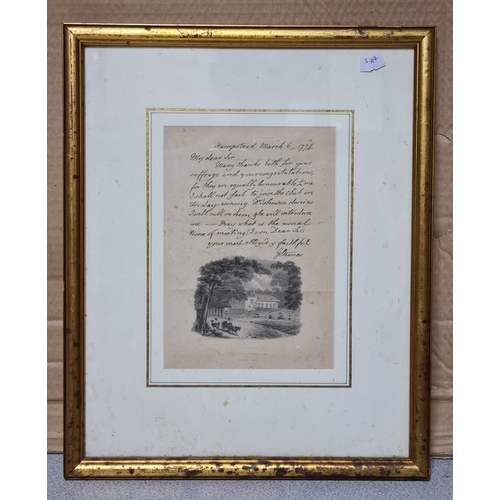 347
Hampstead March 6, 1774
My dear Sir
Many thanks both for your
suffrage and your congratulations,
for they are equally honourable to me
I shall not fail to join the club on
friday evening.
I will call on him, & he will introduce
me — Pray what is the usual
time of meeting? I am Dear Sir
your most obligd & faithful
G Steevens